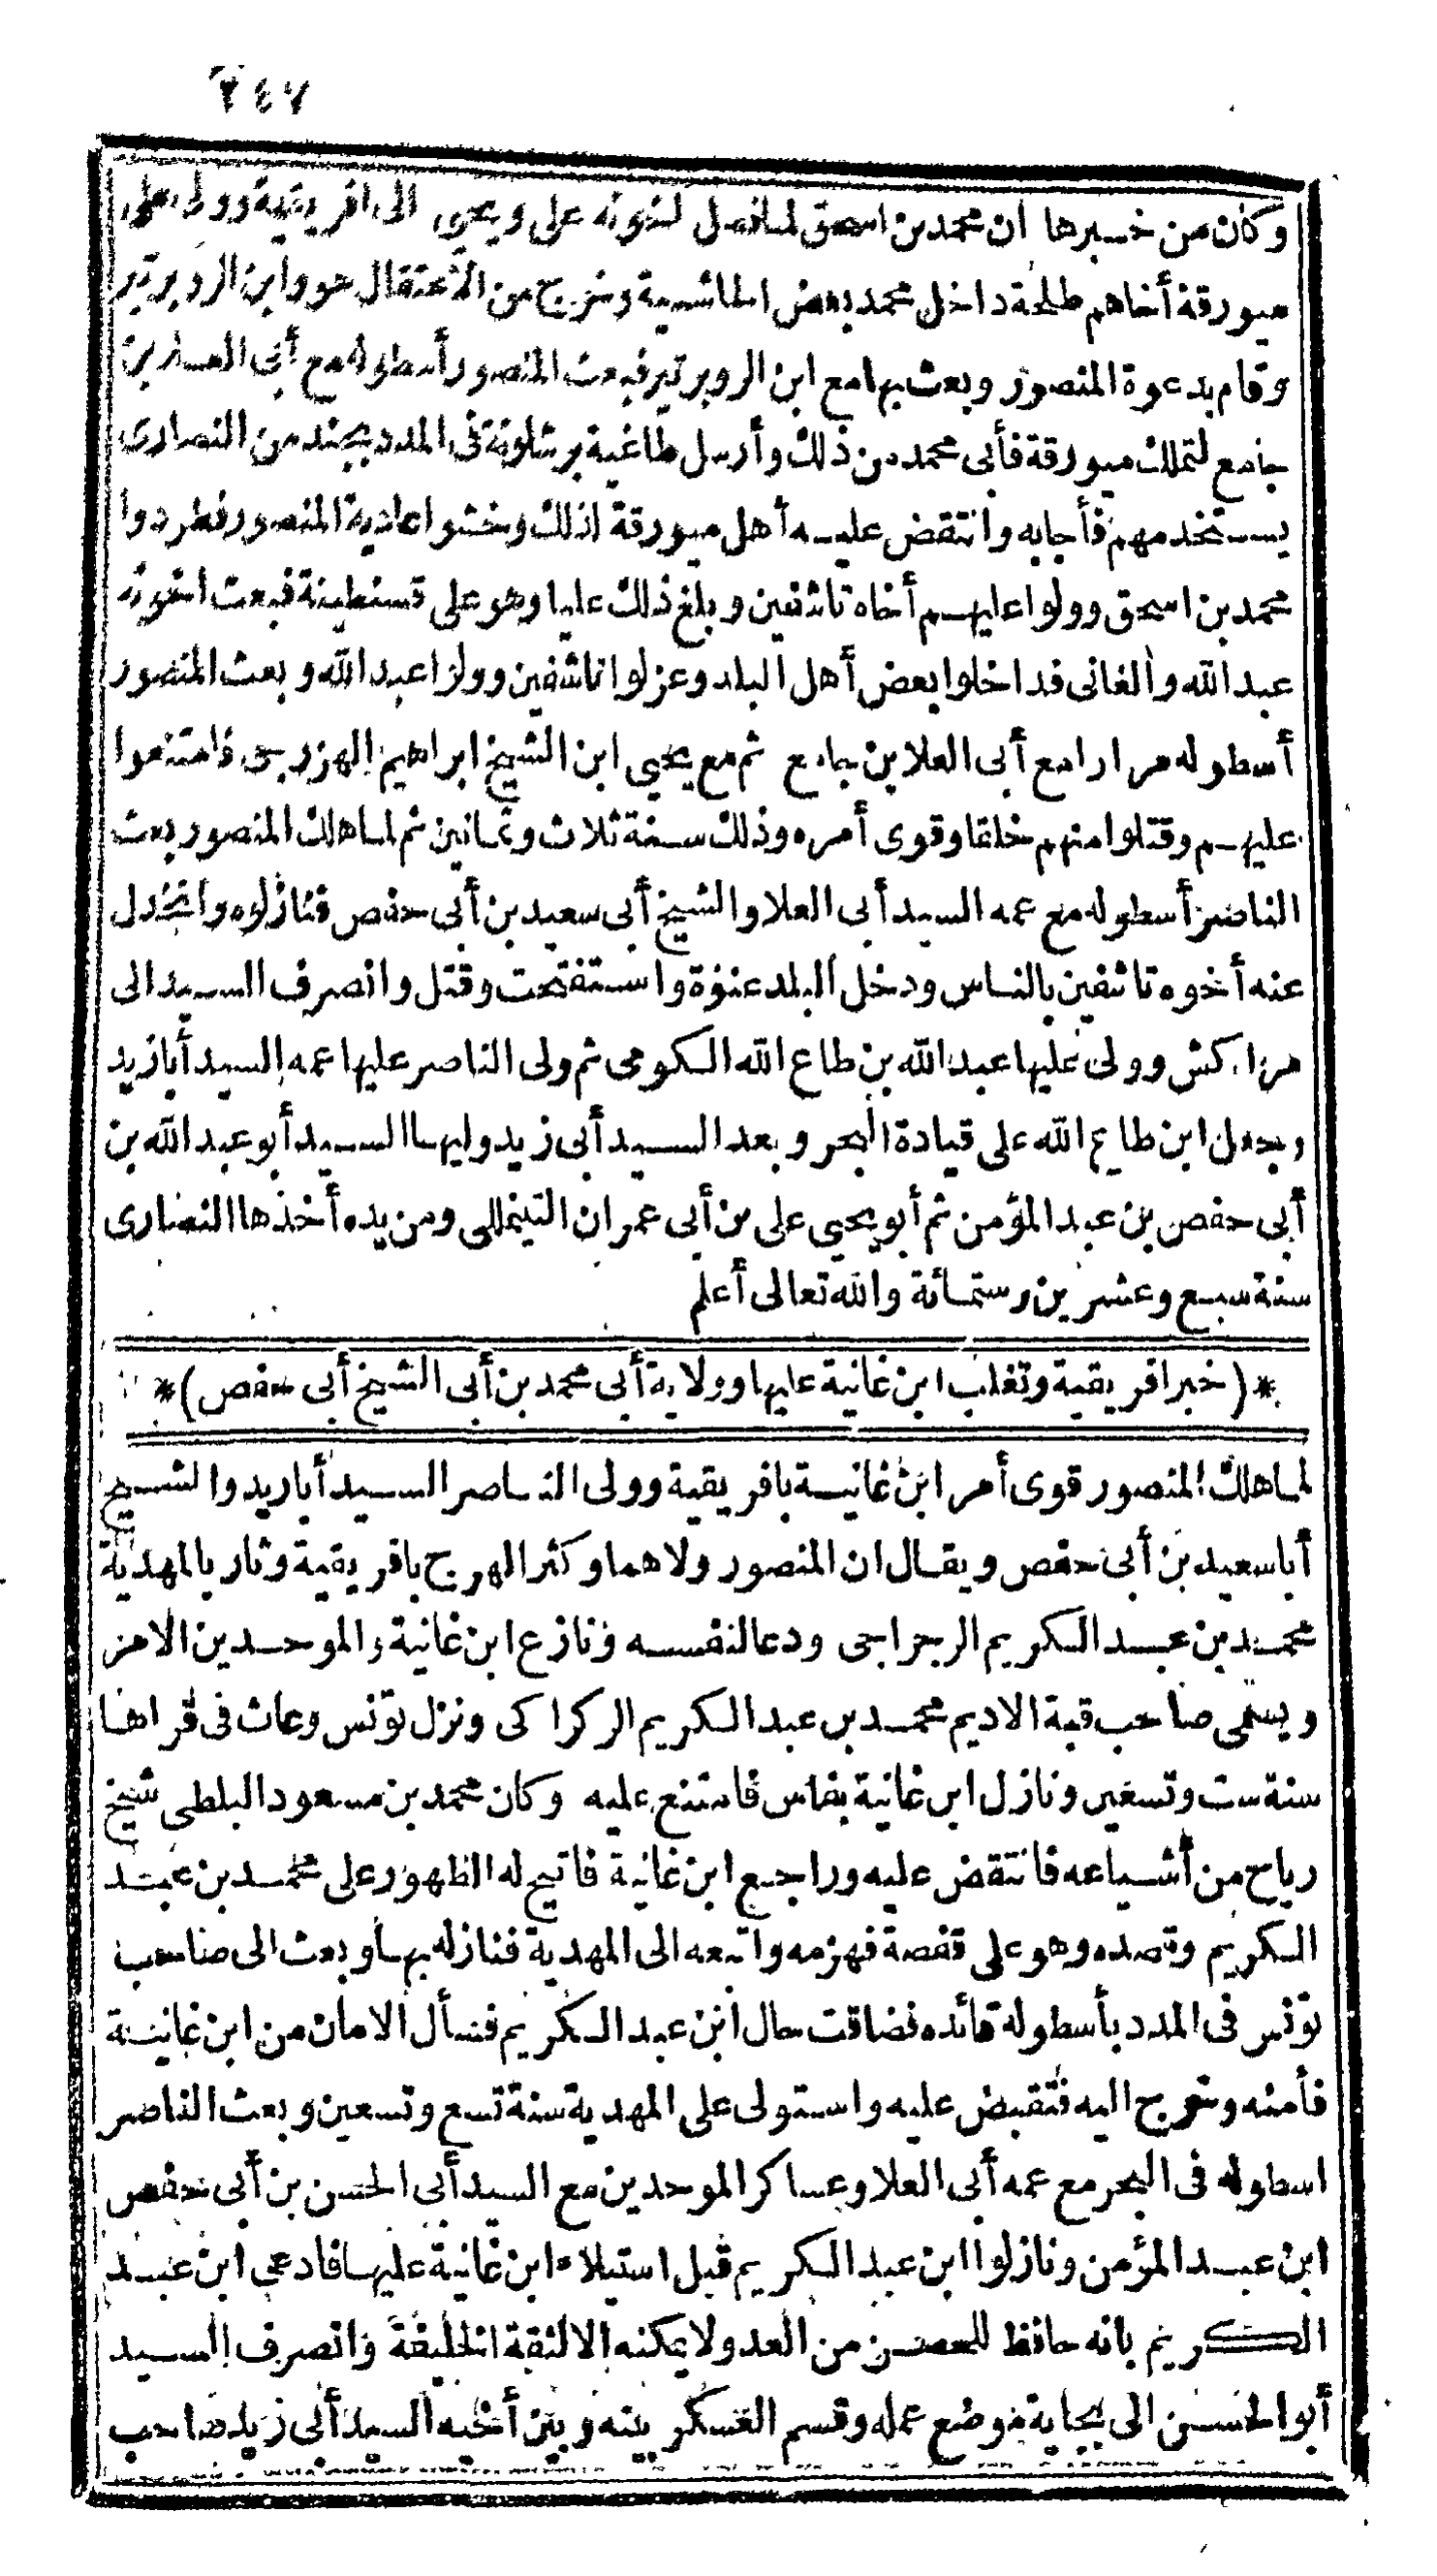 ٢٤٧
وكان من خبرها ان محمد بن اسحق لما فصل اخوته على ويحيى الى افريقية وولى على
ميورقة أخاهم طلحة داخل محمد بعض الحاشية وخرج من الاعتقال هو وابن الروبرتير
وقام بدعوة المنصور وبعث بها مع ابن الروبرتير فبعث المنصور أسطوله مع أبى العلا بن
جامع لتملك ميورقة فأبى محمد من ذلك وأرسل طاغية برشلونة فى المدد بجند من النصارى
يستخدمهم فأجابه وانتقض عليه أهل ميورقة لذلك وخشوا عادية المنصور فطردوا
محمد بن اسحق وولوا عليهم أخاه تاشفين وبلغ ذلك عليا وهو على قسنطينة فبعث اخويه
عبد الله والغانى فداخلوا بعض أهل البلد وعزلوا تاشفين وولوا عبد الله وبعث المنصور
أسطوله مرارا مع أبى العلا بن جامع ثم مع يحيى ابن الشيخ ابراهيم الهزرجى فامتنعوا
عليهم وقتلوا منهم خلقا وقوى أمره وذلك سنة ثلاث وثمانين ثم لما هلك المنصور بعث
الناصر أسطوله مع عمه السيد أبى العلا والشيخ أبى سعيد بن أبى حفص فنازلوه وانخذل
عنه أخوه تاشفين بالناس ودخل البلد عنوة واستفتحت وقتل وانصرف السيد الى
مراكش وولى عليها عبد الله بن طاع الله الكومى ثم ولى الناصر عليها عمه السيد أبا زيد
وجعل ابن طاع الله على قيادة البحر وبعد السيد أبى زيد وليها السيد أبو عبد الله بن
أبى حفص بن عبد المؤمن ثم أبو يحيى على بن أبى عمران التينمللى ومن يده أخذها النصارى
سنة سبع وعشرين وستمائة والله تعالى أعلم
*(خبر افريقية وتغلب ابن غانية عليها وولاية أبى محمد بن أبى الشيخ أبى حفص)*
لما هلك المنصور قوى أمر ابن غانية بافريقية وولى الناصر السيد أبا زيد والشيخ
أبا سعيد بن أبى حفص ويقال ان المنصور ولاهما وكثر الهرج بافريقية وثار بالمهدية
محمد بن عبد الكريم الرجراجى ودعا لنفسه ونازع ابن غانية والموحدين الامر
ويسمى صاحب قبة الاديم محمد بن عبد الكريم الركراكى ونزل تونس وعاث فى قراها
سنة ست وتسعين ونازل ابن غانية بفاس فامتنع عليه وكان محمد بن مسعود البلطى شيخ
رياح من أشياعه فانتقض عليه وراجع ابن غانية فاتيح له الظهور على محمد بن عبد
الكريم وقصده وهو على قفصة فهزمه واتبعه الى المهدية فنازله بها وبعث الى صاحب
تونس فى المدد بأسطوله قائده فضاقت حال ابن عبد الكريم فسأل الامان من ابن غانية
فأمنه وخرج اليه فتقبض عليه واستولى على المهدية سنة تسع وتسعين وبعث الناصر
اسطوله فى البحر مع عمه أبى العلا وعساكر الموحدين مع السيد أبى الحسن بن أبى حفص
ابن عبد المؤمن ونازلوا ابن عبد الكريم قبل استيلاء ابن غانية عليها فادعى ابن عبد
الكريم بانه حافظ للحصن من العدو لا يمكنه الا لثقة الخليفة وانصرف السيد
أبو الحسن الى بجاية موضع عمله وقسم العسكر بينه وبين أخيه السيد أبى زيد صاحب